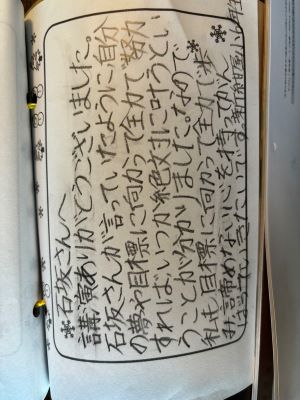 石坂さんへ
講演ありがとうございました。
石坂さんが言っていたように自分
の夢や目標に向かって全力で努力
すればいつか絶対に叶うとい
うことが分かりました。なので
私も目標に向かって全力で歩
み諦めない心を持ってがん
ばっていきたいです。